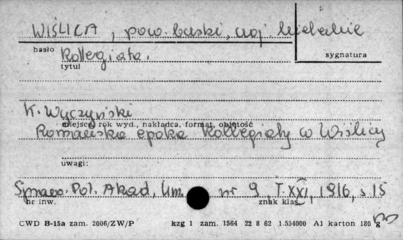 WIŚLICA, pow. buski, woj. kieleckie
hasło Kollegiata. sygnatura
tytuł
K. Wyczyński
miejsce, rok wyd., nakładca, format, objętość
Romańska epoka Kollegiaty w Wiślicy
uwagi:
Spraw. Pol. Akad. Um. nr 9 T. XXI, 1916, s 15
nr inw. znak klas.
CWD B-15a zam. 2006/ZW/P kzg 1 zam. 1564 22 8 62 1.554000 A1 karton 180 g